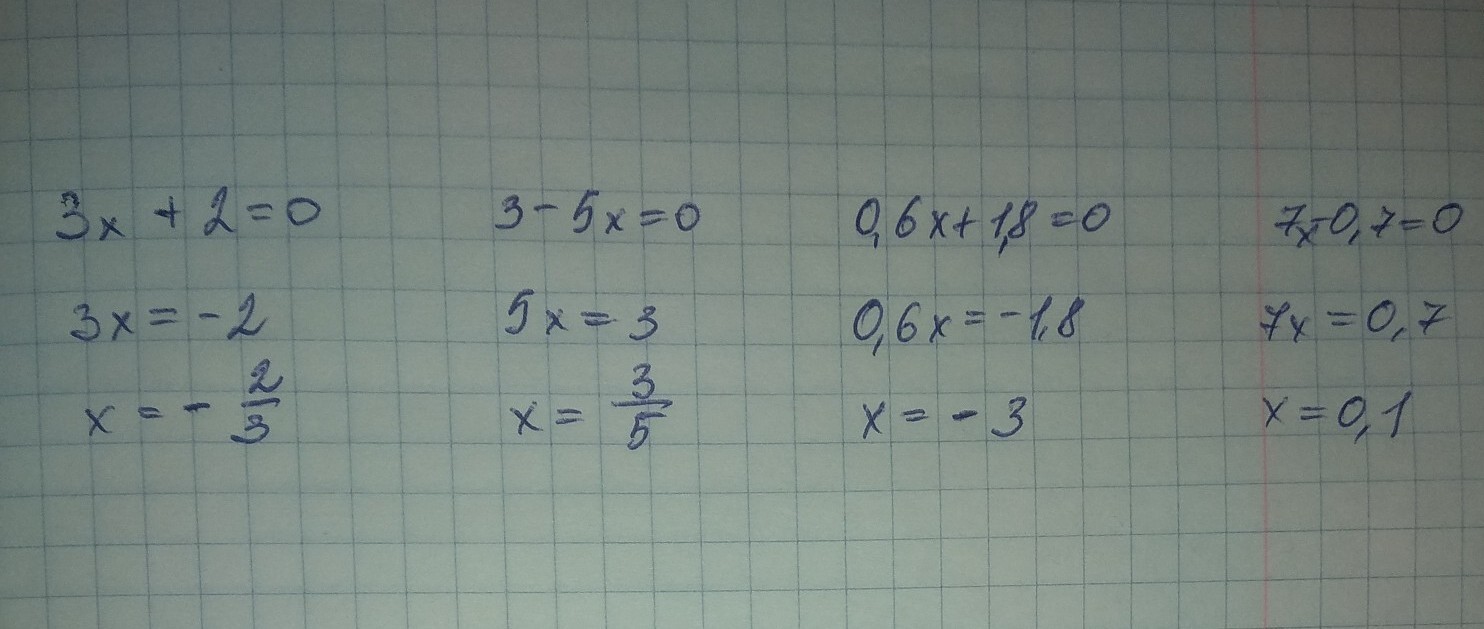 3x + 2 = 0
3x = - 2
x = - 2/3
3 - 5x = 0
5x = 3
x = 3/5
0,6x + 1,8 = 0
0,6x = - 1,8
x = - 3
7x - 0,7 = 0
7x = 0,7
x = 0,1